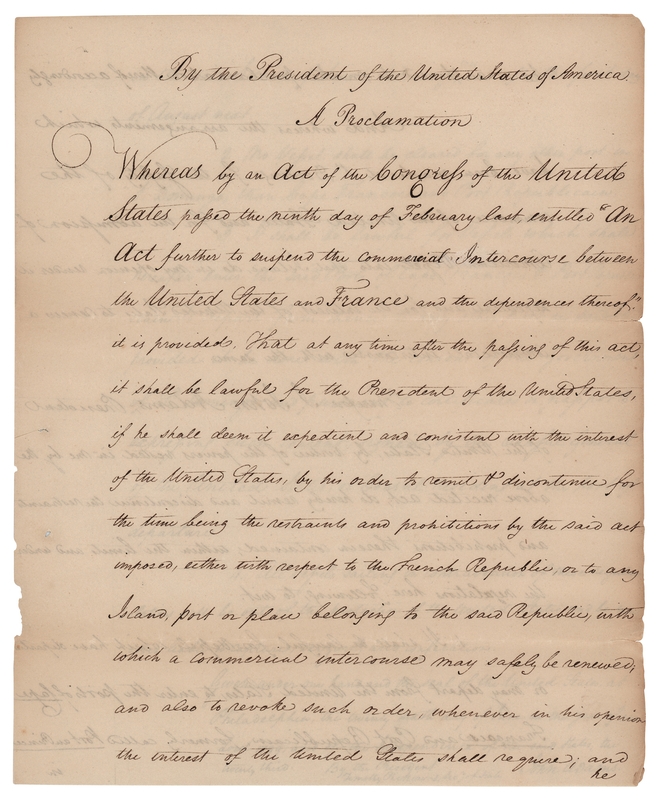 By the President of the United States of America
A Proclamation
Whereas by an Act of the Congress of the United
States passed the ninth day of February last, entitled "An
Act further to suspend the commercial Intercourse between
the United States and France and the dependences thereof."
it is provided. That at any time after the passing of this act,
it shall be lawful for the President of the United States,
if he shall deem it expedient and consistent with the interest
of the United States, by his order to remit & discontinue for
the time being the restraints and prohibitions by the said act
imposed, either with respect to the French Republic, or to any
Island, port or place belonging to the said Republic, with
which a commercial intercourse may safely be renewed;
and also to revoke such order, whenever in his opinion
the interest of the United States shall require; and
he